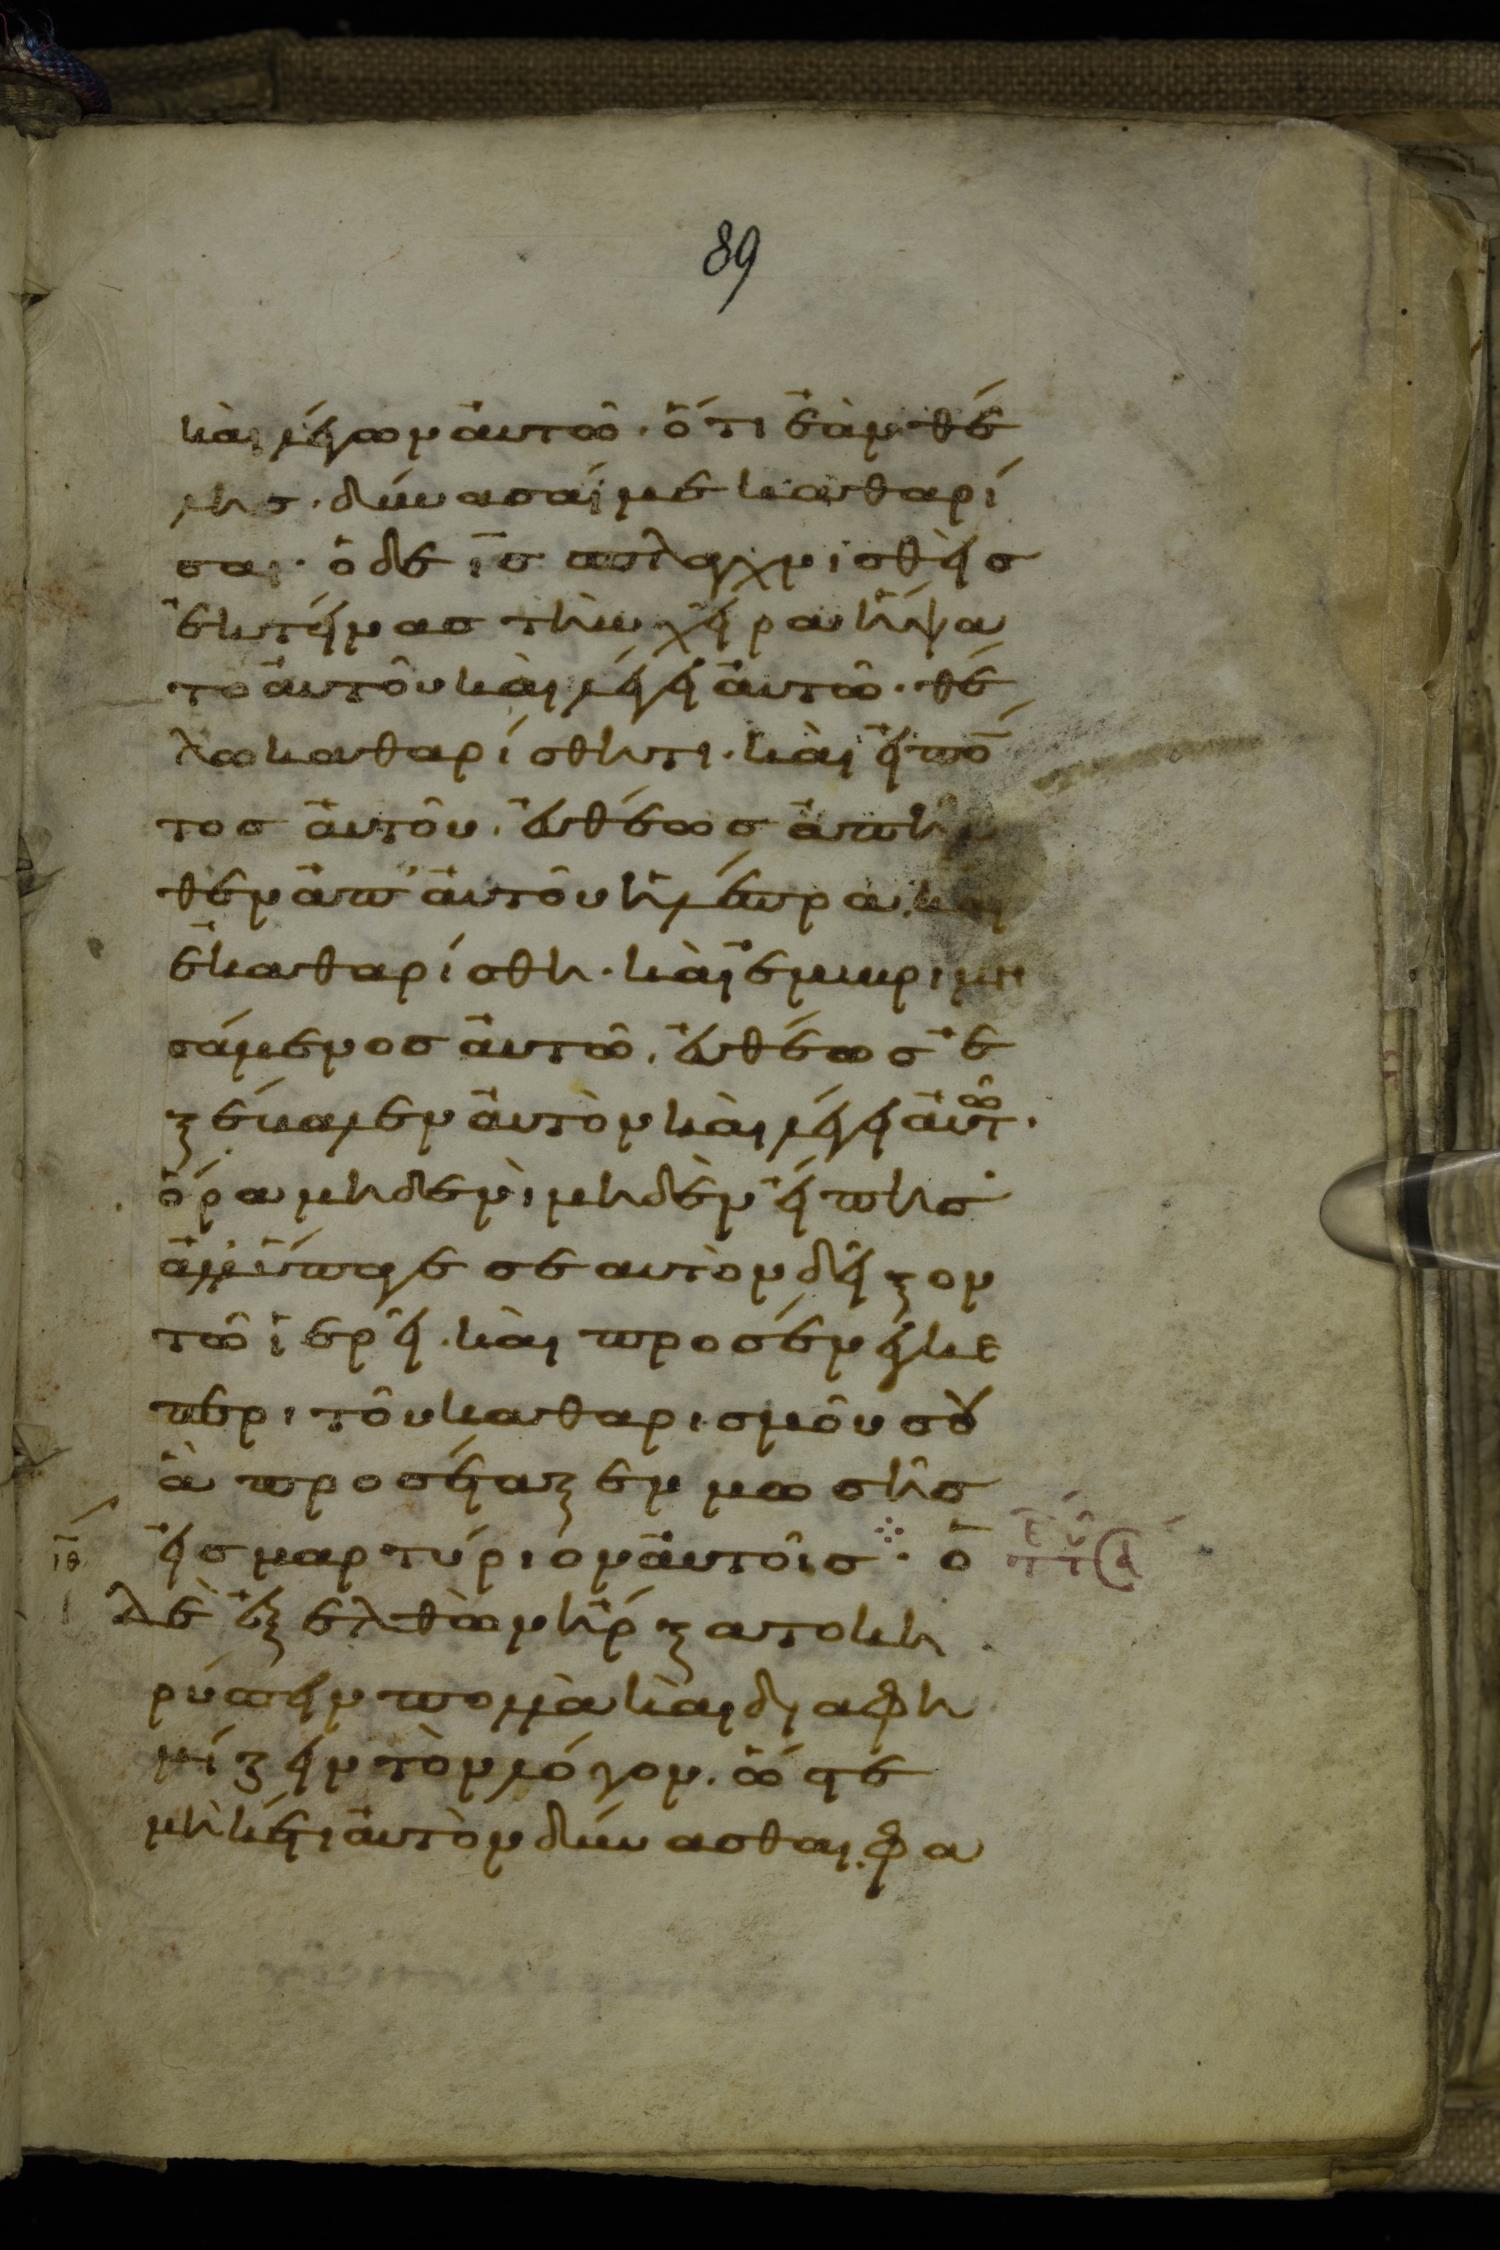 89
καὶ λέγων αὐτῶ· ὅτι ἐὰν θέ
λης· δύνασαί με καθαρί
σαι· ὁ δὲ ις σπλαγχνισθεὶς
ἐκτείνας τὴν χεῖρα ἥψα
το αὐτοῦ καὶ λέγει αὐτῶ· θέ
λω καθαρίσθητι· καὶ εἰπό
τος αὐτοῦ, εὐθέως ἀπῆλ
θεν ἀπ' αὐτοῦ ἡ λέπρα, καὶ
ἐκαθαρίσθη· καὶ ἐμβριμη
σάμενος αὐτῶ, εὐθέως ἐ
ξέβαλεν αὐτὸν καὶ λέγει αὐτῶ·
ὅρα μηδενὶ μηδὲν εἴπης·
ἀλλ' ὕπαγε σεαυτὸν δεῖξον
τῶ ἱερεῖ· καὶ προσένεγκε
περὶ τοῦ καθαρισμοῦ σου
ἃ προσέταξεν μωσῆς
ιθ εἰς μαρτύριον αὐτοῖς· ὁ
δὲ ἐξελθὼν ἤρξατο κη
ρύσσειν πολλὰ καὶ διαφη
μίζειν τὸν λόγον· ὥστε
μηκέτι αὐτὸν δύνασθαι φα